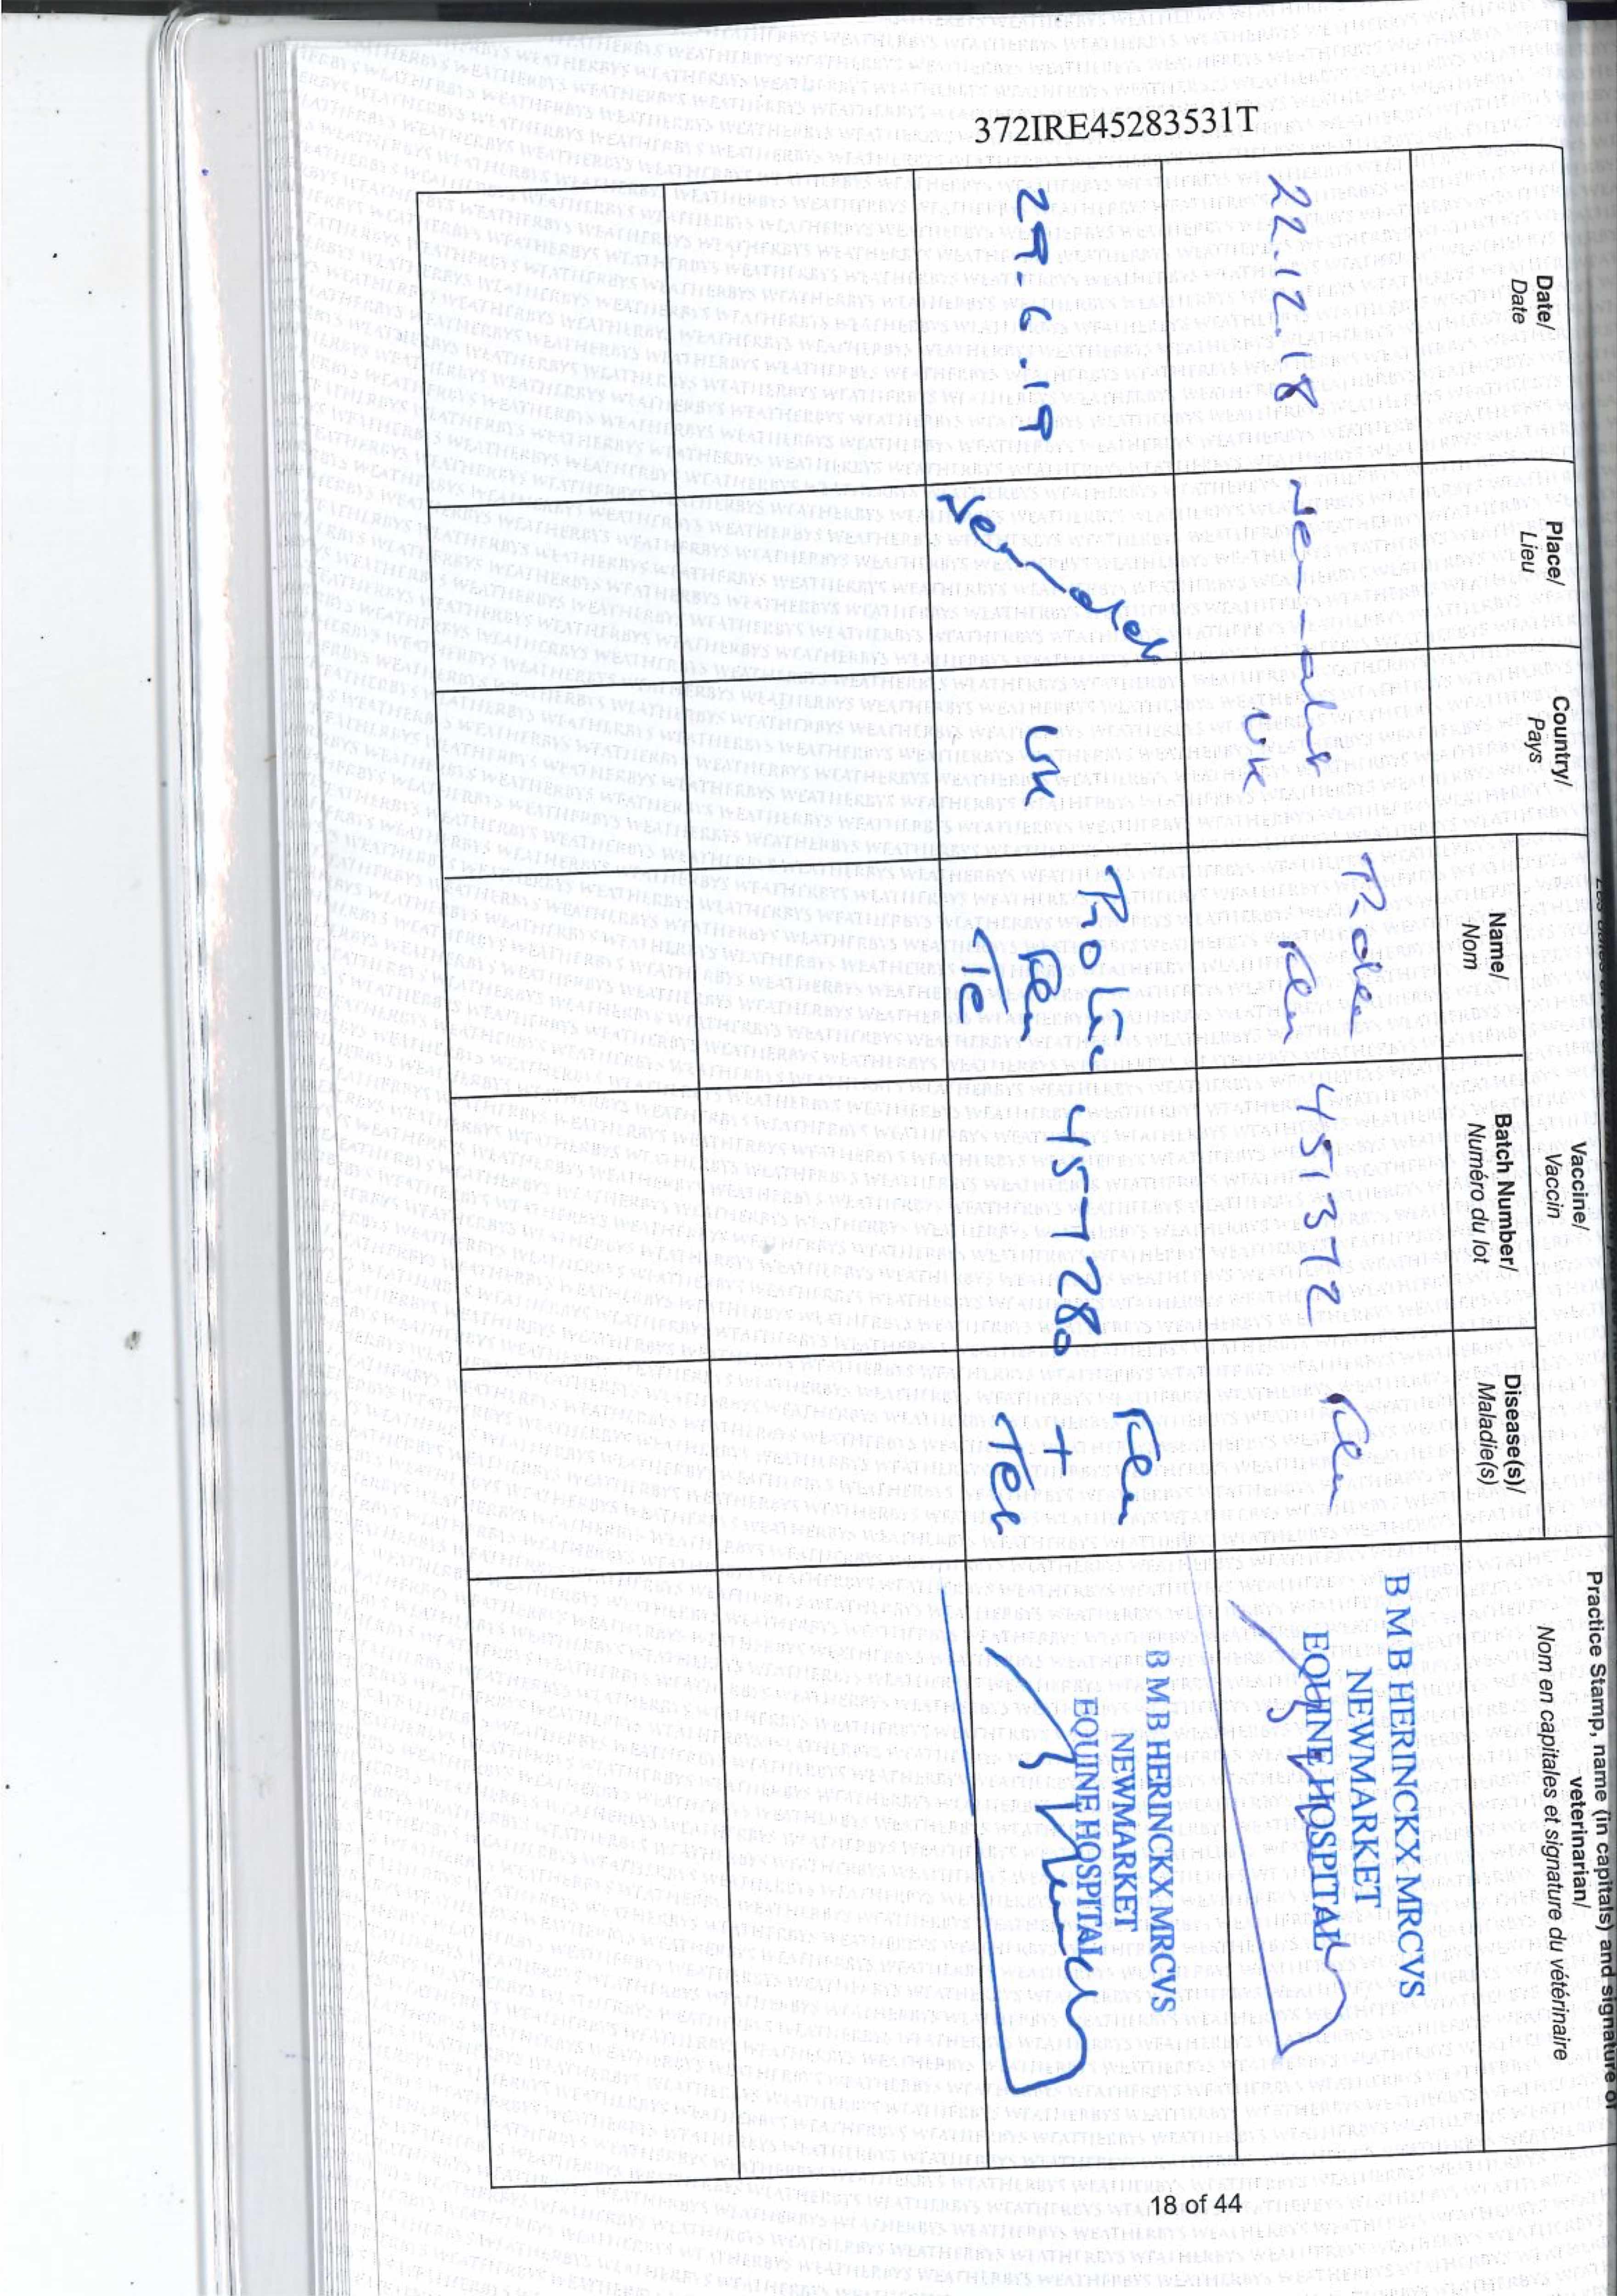 372IRE45283531T
Practice Stamp, name (in capitals) and signature of
veterinarian/
Nom en capitales et signature du vétérinaire
Vaccine/
Vaccin
Date/
Date
Place/
Lieu
Country/
Pays
Name/
Nom
Batch Number/
Numéro du lot
Disease(s)/
Maladie(s)
22.12.18
UK
Flu
451372
Flu
B M B HERINCKX MRCVS
NEWMARKET
EQUINE HOSPITAL
29.6.19
Newmarket
UK
Proteq
Flu
Te
457280
Flu
+
Tet
B M B HERINCKX MRCVS
NEWMARKET
EQUINE HOSPITAL
18 of 44